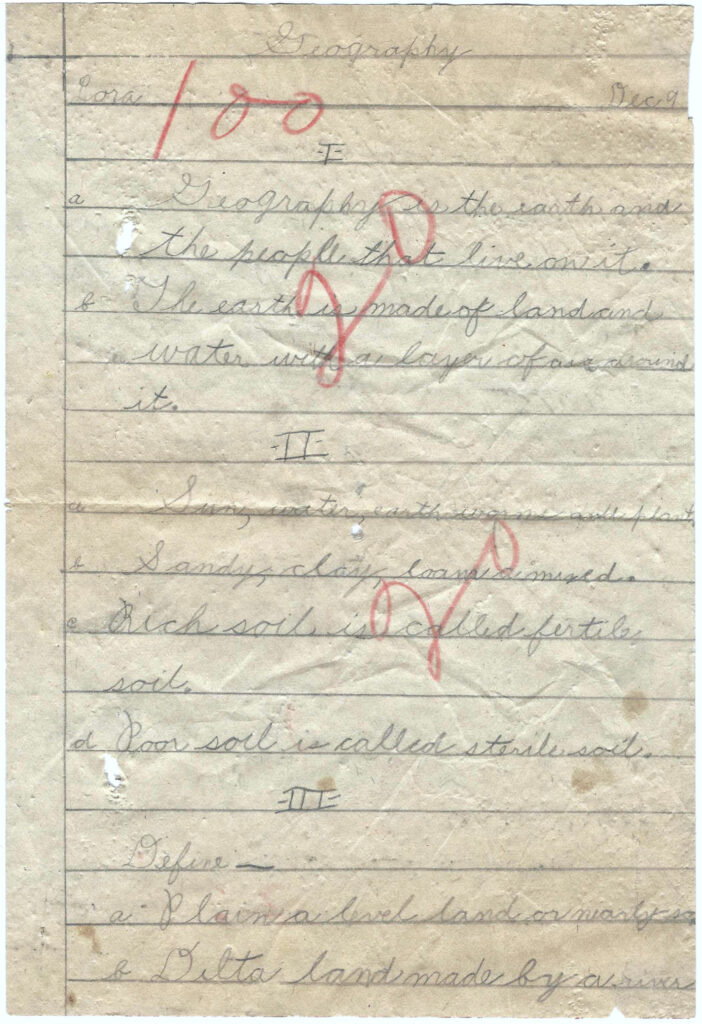 Geography
Lora 100 Dec 9
-I-
a Geography is the earth and
the people that live on it.
b The earth is made of land and
water with a layer of air around
it.
20
-II-
a Sun, water, earth worms and plants
b Sandy, clay, loam & mixed.
c Rich soil is called fertile
soil.
20
d Poor soil is called sterile soil.
-III-
Define —
a Plain a level land or nearly so
b Delta land made by a river